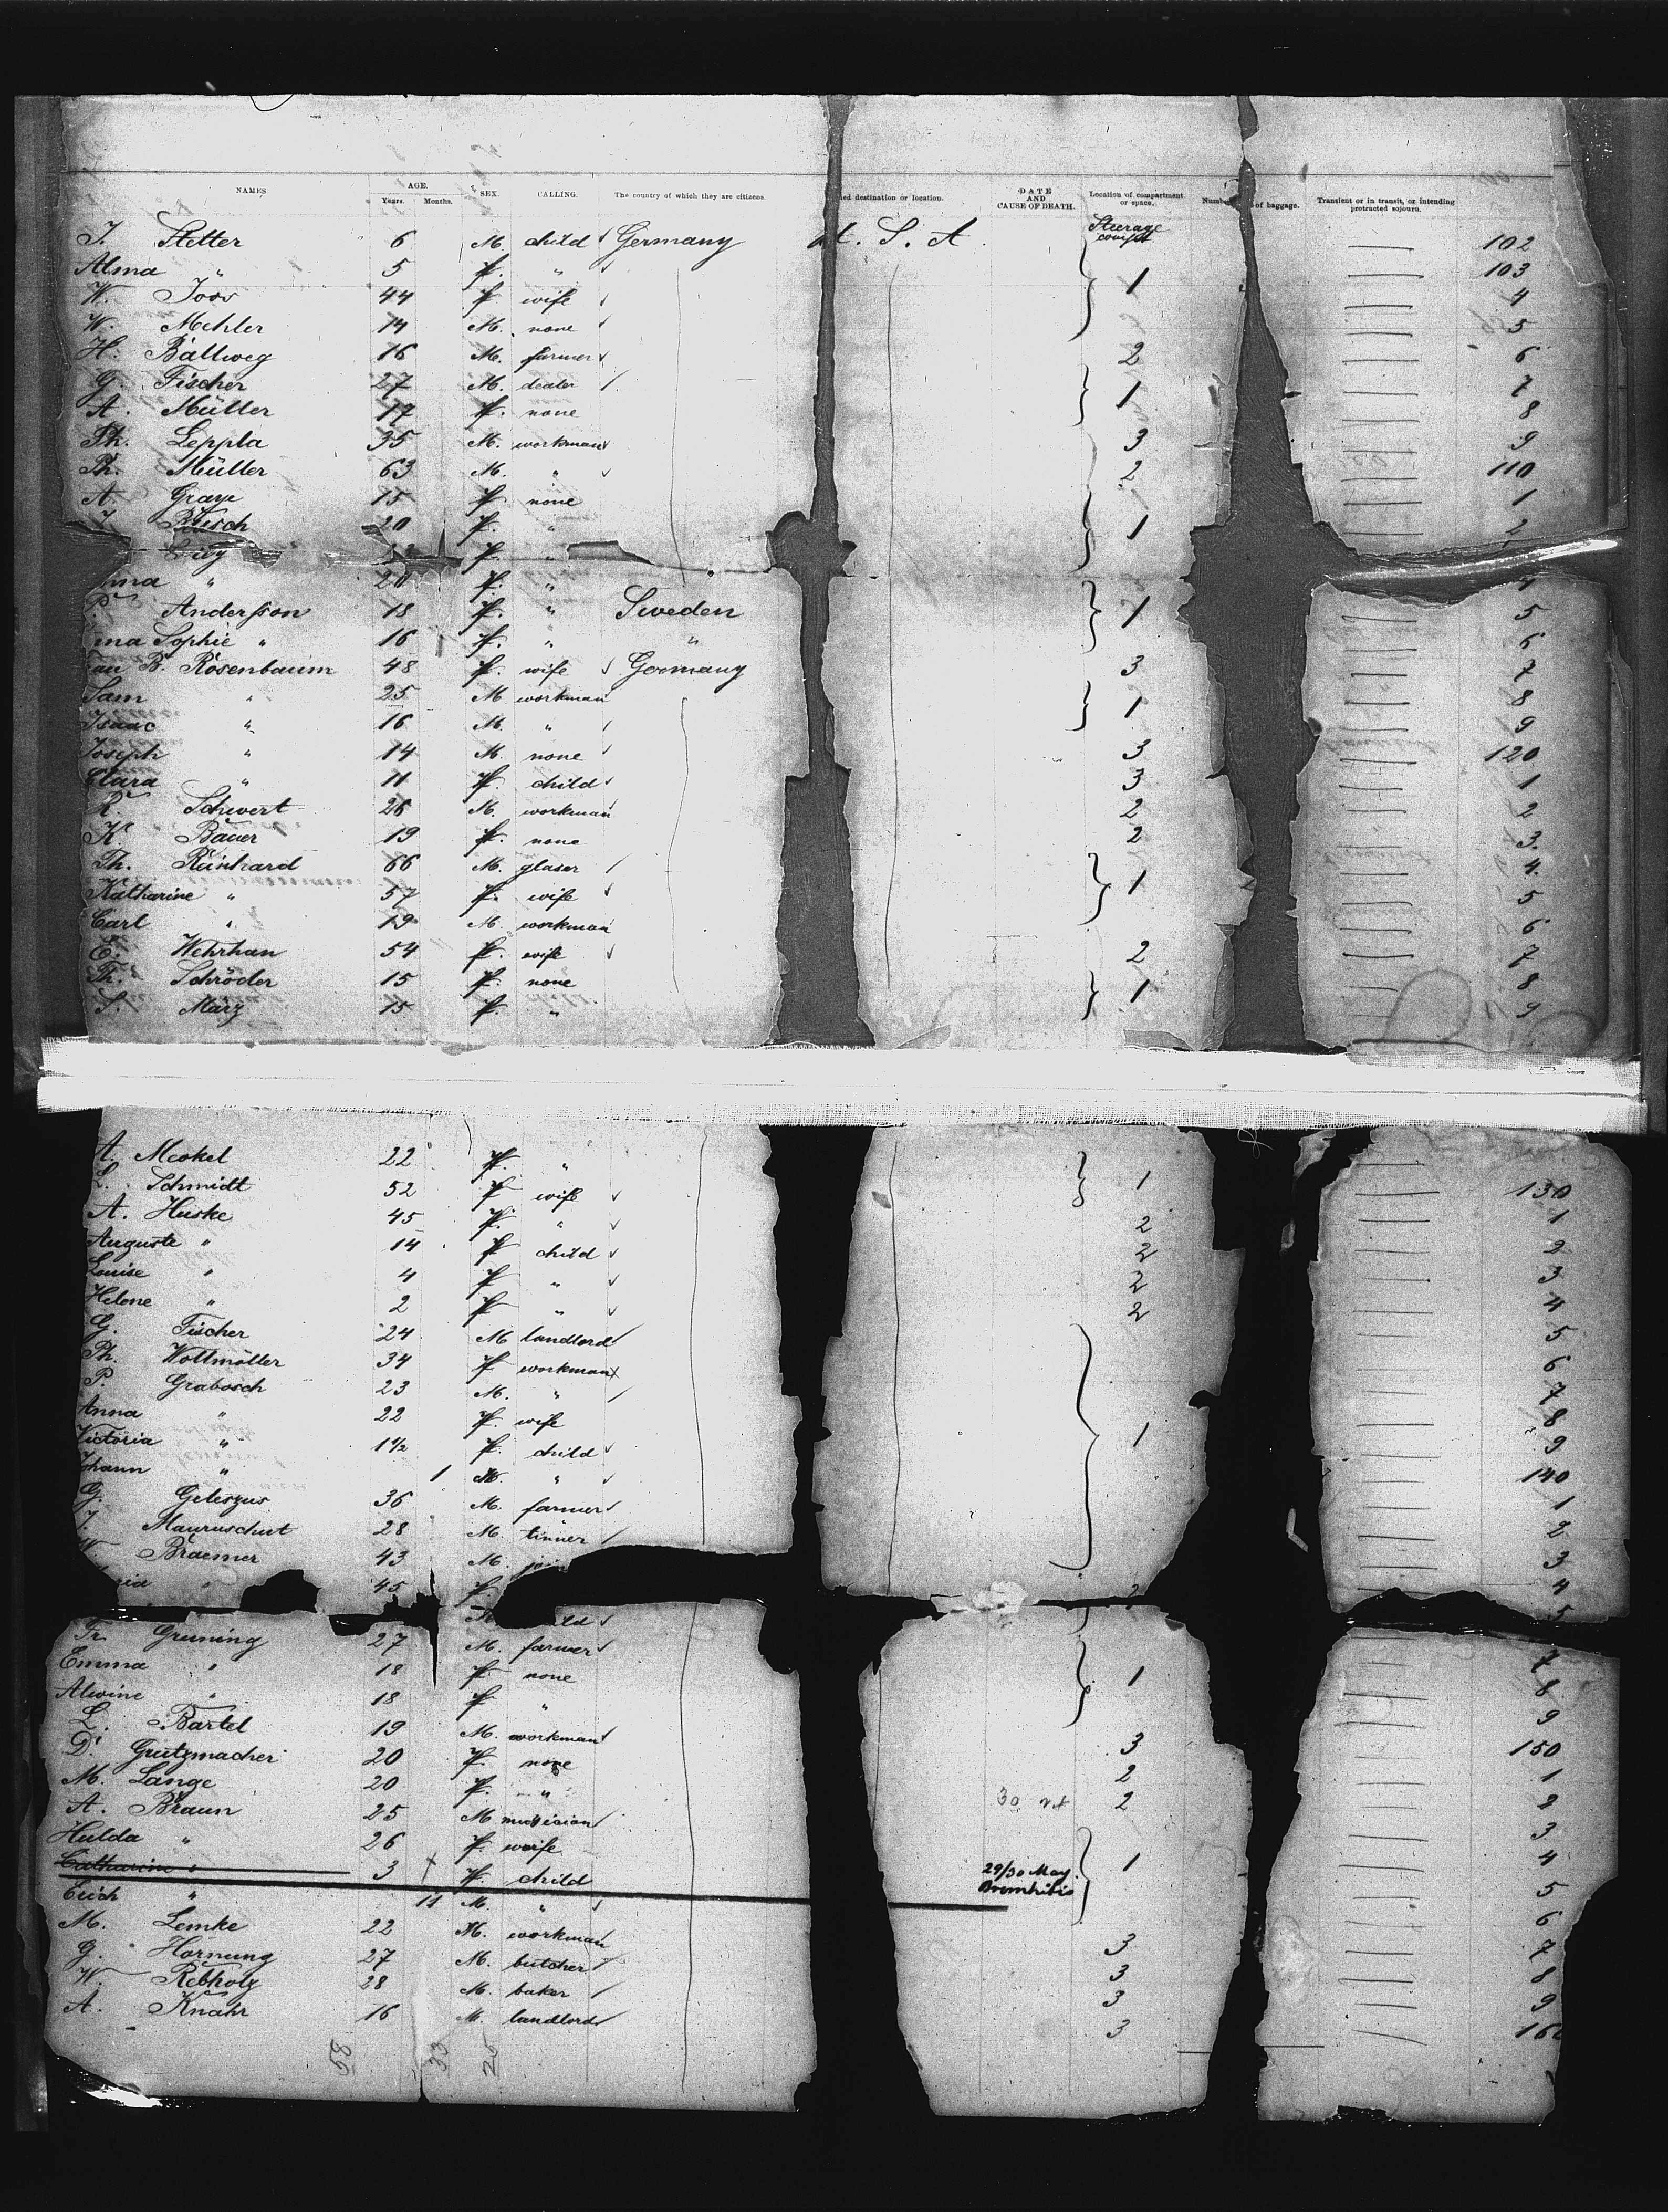 NAMES AGE. Years. Months. SEX. CALLING. The country of which they are citizens. ed destination or location. DATE AND CAUSE OF DEATH. Location of compartment or space. Number of baggage. Transient or in transit, or intending protracted sojourn.
J. Stetter 6 M. child Germany U. S. A. Steerage compt 102
Alma " 5 f. " 1 103
W. Joos 44 f. wife 4
W. Mehler 14 M. none 5
H. Ballweg 16 M. farmer 2 6
G. Fischer 27 M. dealer 1 7
A. Müller 17 f. none 8
Ph. Leppla 35 M. workman 3 9
Ph. Müller 63 M. " 2 110
A. Graye 15 f. none 1
20 f. " 1 2
f. "
ma " 20 f. " 4
P. Andersson 18 f. " Sweden 1 5
ma Sophie " 16 f. " " 6
au B. Rosenbaum 48 f. wife Germany 3 7
Sam " 25 M workman 1 8
Isaac " 16 M. " 9
Joseph " 14 M. none 3 120
Clara " 11 f. child 3 1
R. Schwert 26 M. workman 2 2
K. Bauer 19 f. none 2 3.
Th. Reinhard 66 M. glaser 1 4.
Katharine " 57 f. wife 5
Carl " 19 M. workman 6
E. Wehrhan 54 f. wife 2 7
Th. Schröder 15 f. none 1 8
S. März 15 f. " 9
A. Meckel 22 f. "
L. Schmidt 52 f wife 1 130
A. Huske 45 f. " 2 1
Auguste " 14 f child 2 2
Louise " 4 f " 2 3
Helene " 2 f " 2 4
G. Fischer 24 M landlord 5
Ph. Wollmöller 34 f workman 6
P. Grabosch 23 M. " 7
Anna " 22 f. wife 8
Victoria " 1 1/2 f. child 1 9
ohann " 1 M. " 140
G. Geleszus 36 M. farmer 1
J. Mauruschat 28 M. tinner 2
W. Braemer 43 M. joi 3
ria " 45 f. 2 4
ld 5
Fr. Gruning 27 M. farmer
Emma " 18 f none 1 7
Alwine " 18 f " 8
L. Bartel 19 M. workman 9
D. Grutzmacher 20 f. none 3 150
M. Lange 20 f. " 2 1
A. Braun 25 M musician 2 2
Hulda " 26 f. wife 3
Catharine " 3 f child 29/30 May 1 4
Erich " 11 M. " 5
M. Lemke 22 M. workman 3 6
G. Hornung 27 M. butcher 3 7
W. Rebholz 28 M. baker 3 8
A. Knahr 16 M. landlord 3 9
160
58 33 25